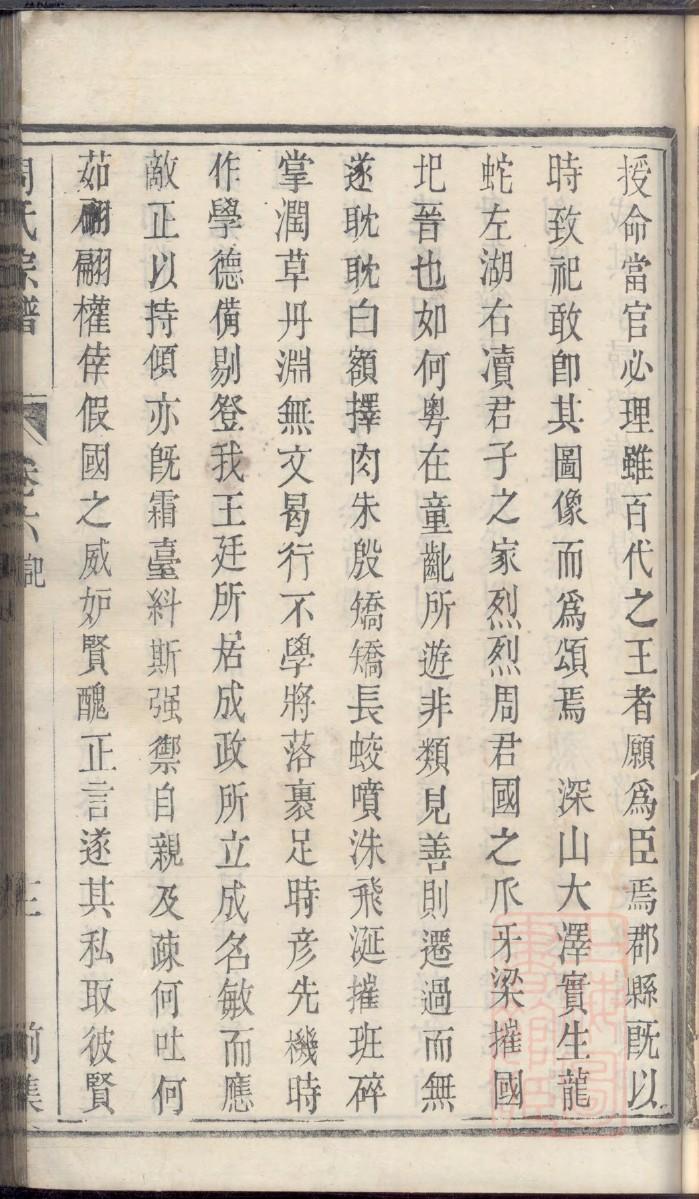 授命當官必理雖百代之王者願爲臣焉郡縣旣以
時致祀敢卽其圖像而爲頌焉　深山大澤實生龍
蛇左湖右凟君子之家烈烈周君國之爪牙梁摧國
圯晉也如何粵在童齔所遊非類見善則遷過而無
遂眈眈白額擇肉朱殷矯矯長蛟噴洙飛涎摧班碎
掌潤草丹淵無文曷行不學將落裹足時彥先機時
作學德備剔登我王廷所居成政所立成名敏而應
敵正以持傾亦旣霜臺糾斯强禦自親及疎何吐何
茹翩翩權倖假國之威妒賢醜正言遂其私取彼賢
周氏宗譜　卷六　記　前集